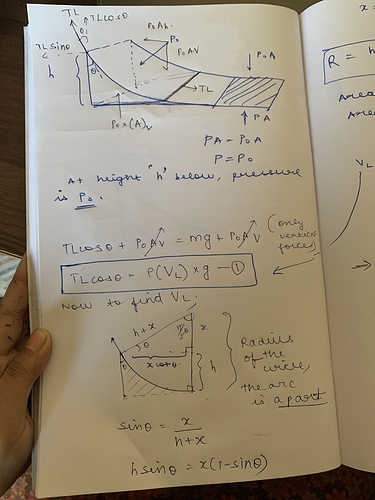 TL
TLcosθ
TLsinθ
θ
P₀Ah.
P₀
P₀AV
h
θ
TL
P₀A
P₀×(A)ᵥ
PA
PA = P₀A
P = P₀
At height "h" below, pressure
is P₀.
TLcosθ + P₀AV = mg + P₀AV (only vertical forces)
TLcosθ = ρ(V_L) × g — ①
Now to find V_L.
h+x
θ
x
x cotθ
h
θ
Radius
of the
circle,
the arc
is a part
sinθ = x/(h+x)
h sinθ = x(1-sinθ)
R =
Area
Area
V_L